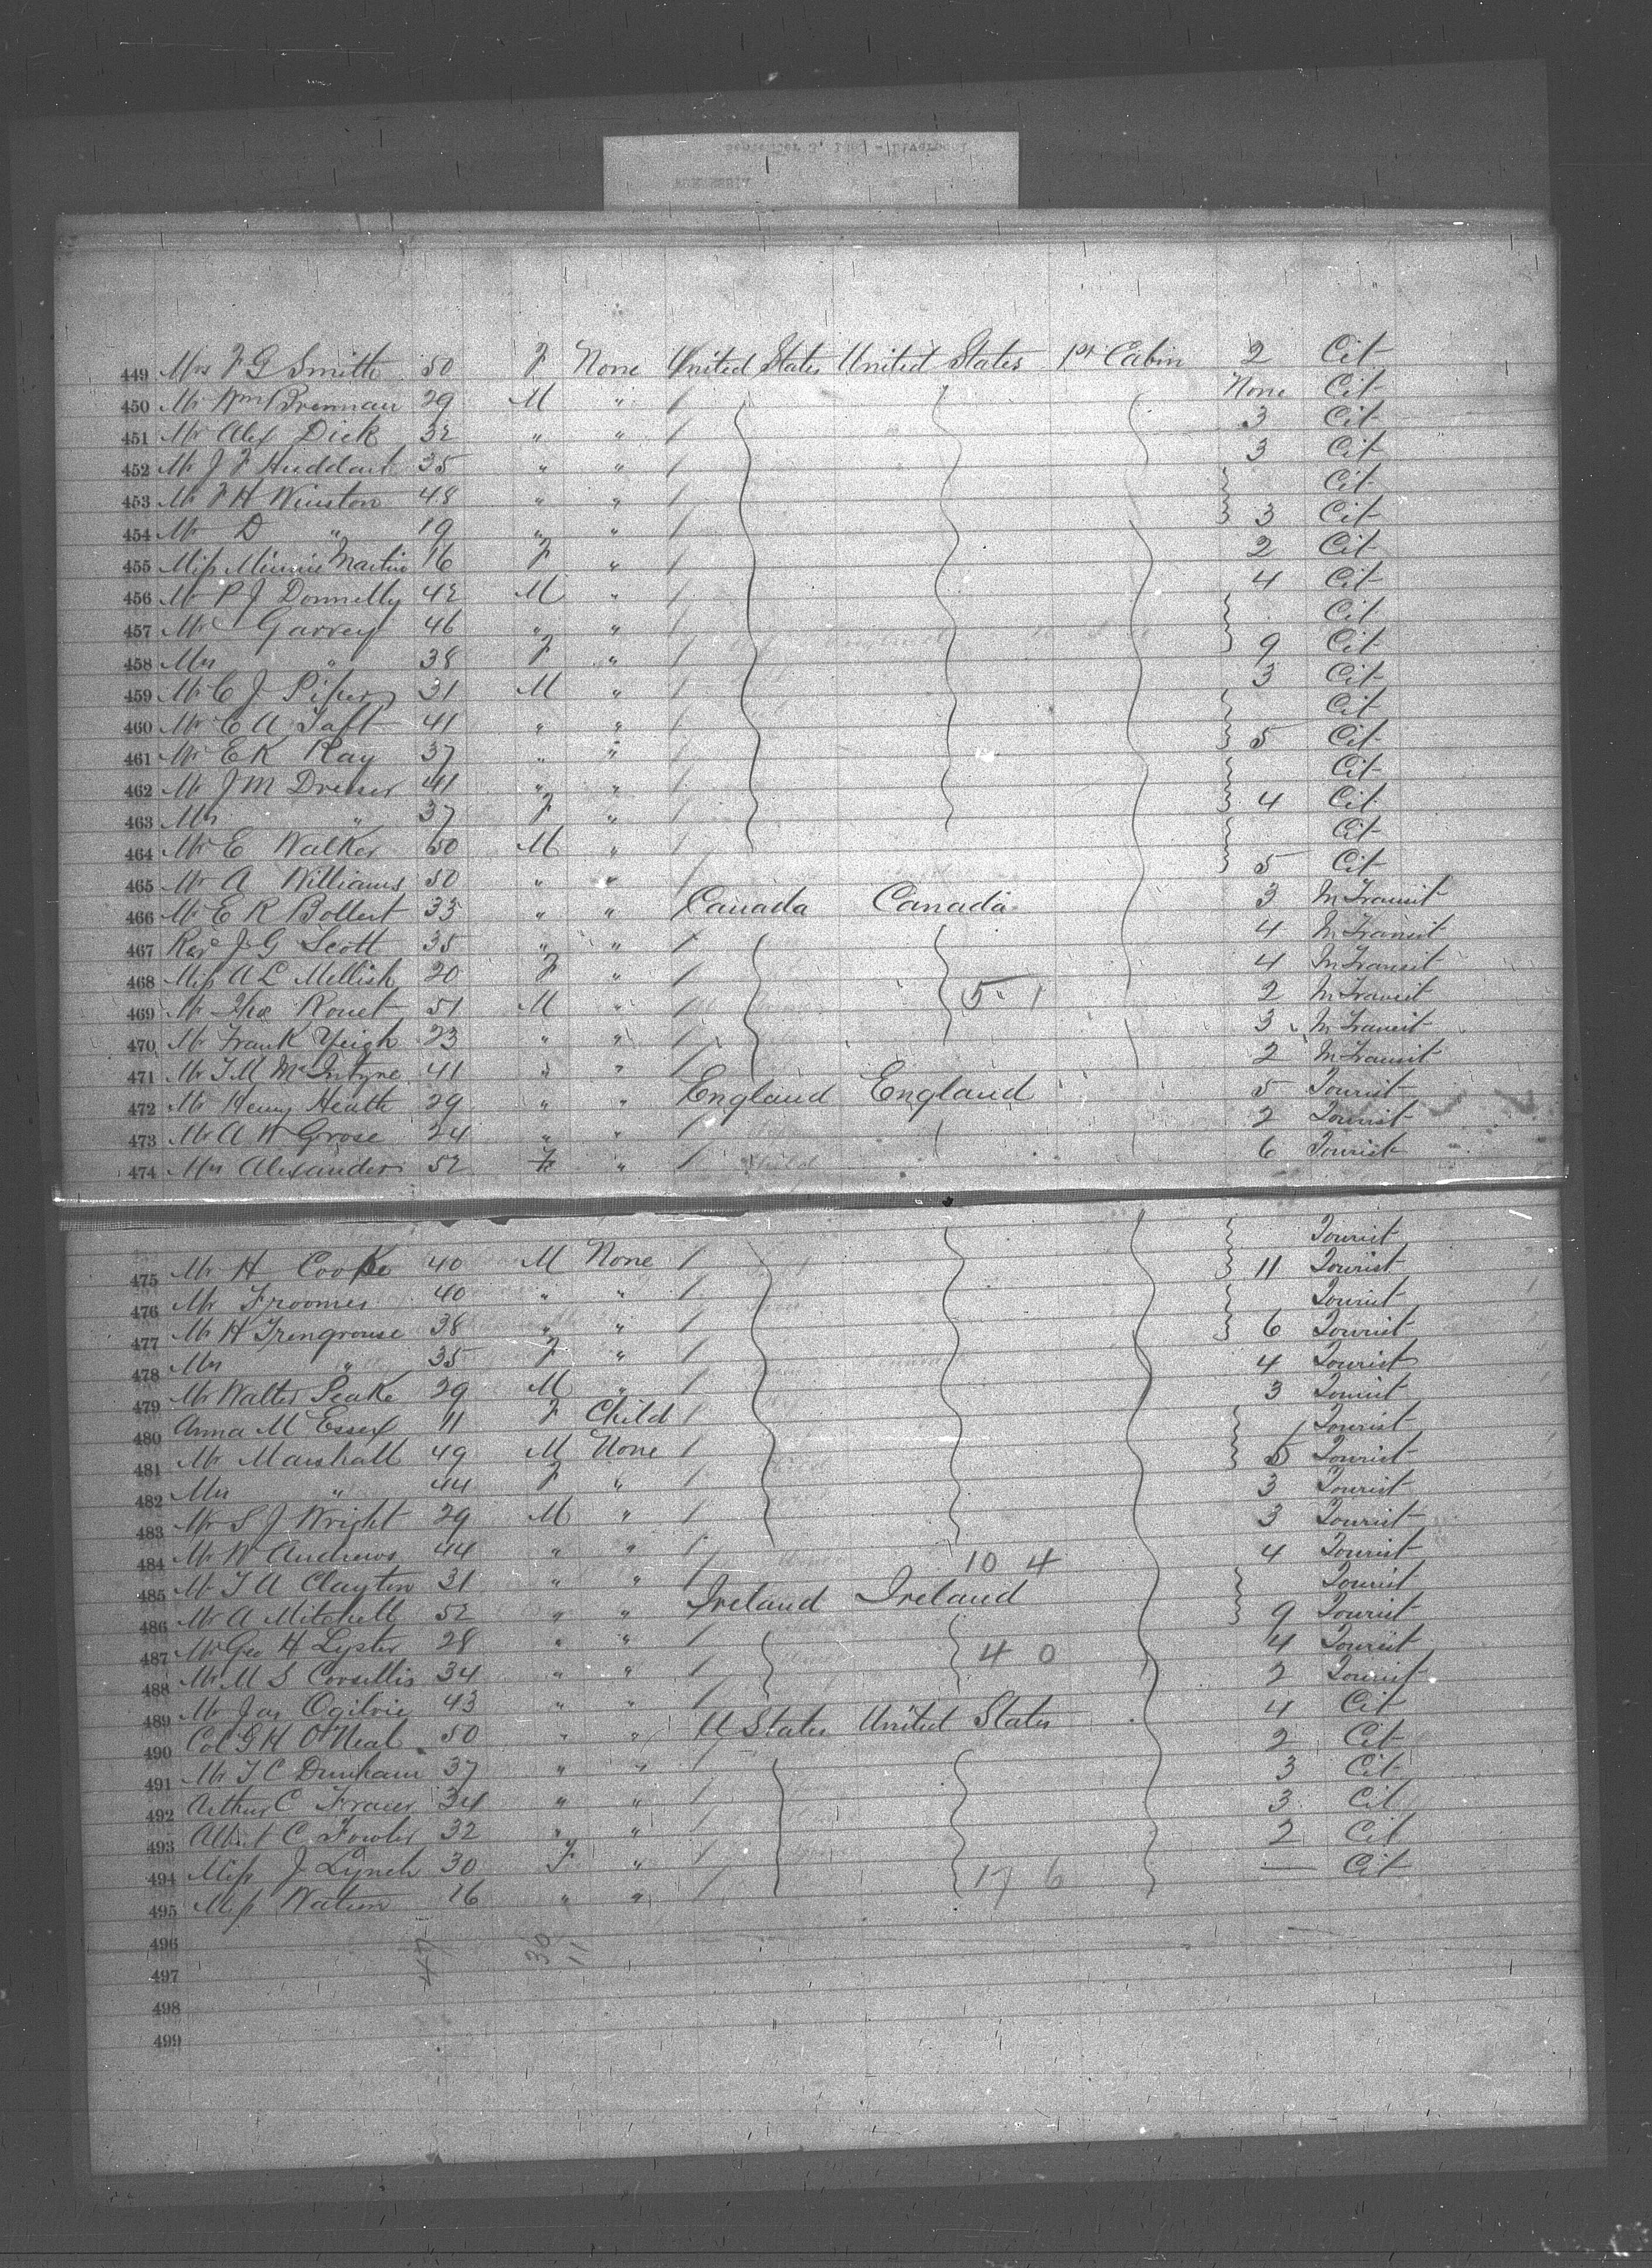 449 Mrs F G Smith 50 F None United States United States 1st Cabin 2 Cit
450 Mr Wm Brennan 29 M " / None Cit
451 Mr Alex Dick 32 " " / 3 Cit
452 Mr J F Huddart 35 " " / 3 Cit
453 Mr F H Winston 48 " " / Cit
454 Mr D " 19 " " / 3 Cit
455 Miss Minnie Martin 16 F " / 2 Cit
456 Mr P J Donnelly 42 M " / 4 Cit
457 Mr Garvey 46 " " / Cit
458 Mrs " 38 F " / 9 Cit
459 Mr C J Piper 31 M " / 3 Cit
460 Mr C A Taft 41 " " / Cit
461 Mr E K Ray 37 " " / 5 Cit
462 Mr J M Dresser 41 " " / Cit
463 Mrs " 37 F " / 4 Cit
464 Mr E Walker 50 M " / Cit
465 Mr A Williams 50 " " / 5 Cit
466 Mr E R Bollert 33 " " Canada Canada 3 In Transit
467 Rev J G Scott 35 " " / 4 In Transit
468 Miss A L Mellish 20 F " / 4 In Transit
469 Mr Rouet 51 M " / 5 1 2 In Transit
470 Mr Frank Yeigh 23 " " / 3 In Transit
471 Mr T M McIntyre 41 " " / 2 In Transit
472 Mr Henry Heath 29 " " England England 5 Tourist
473 Mr A W Grose 24 " " / 2 Tourist
474 Mrs Alexander 52 F " / 6 Tourist
475 Mr H Cooke 40 M None / Tourist
476 Mr Froomes 40 " " / 11 Tourist
477 Mr H Trengrouse 38 " " / Tourist
478 Mrs " 35 F " / 6 Tourist
479 Mr Walter Peake 29 M " / 4 Tourist
480 Anna M Essex 11 F Child / 3 Tourist
481 Mr Marshall 49 M None / Tourist
482 Mrs " 44 F " / 5 Tourist
483 Mr S J Wright 29 M " / 3 Tourist
484 Mr W Andrews 44 " " / 3 Tourist
485 Mr T A Clayton 31 " " / 10 4 4 Tourist
486 Mr A Mitchell 52 " " Ireland Ireland Tourist
487 Mr Geo H Lyster 28 " " / 9 Tourist
488 Mr M S Corsellis 34 " " / 4 0 4 Tourist
489 Mr Jas Ogilvie 43 " " / 2 Tourist
490 Col G H O'Neal 50 " " U States United States 4 Cit
491 Mr T C Dunham 37 " " / 2 Cit
492 Arthur C Fraser 34 " " / 3 Cit
493 Albert C Fowler 32 " " / 3 Cit
494 Miss J Lynch 30 F " / 2 Cit
495 Miss Watson 16 " " / 17 6 — Cit
496
497 47 30 11
498
499